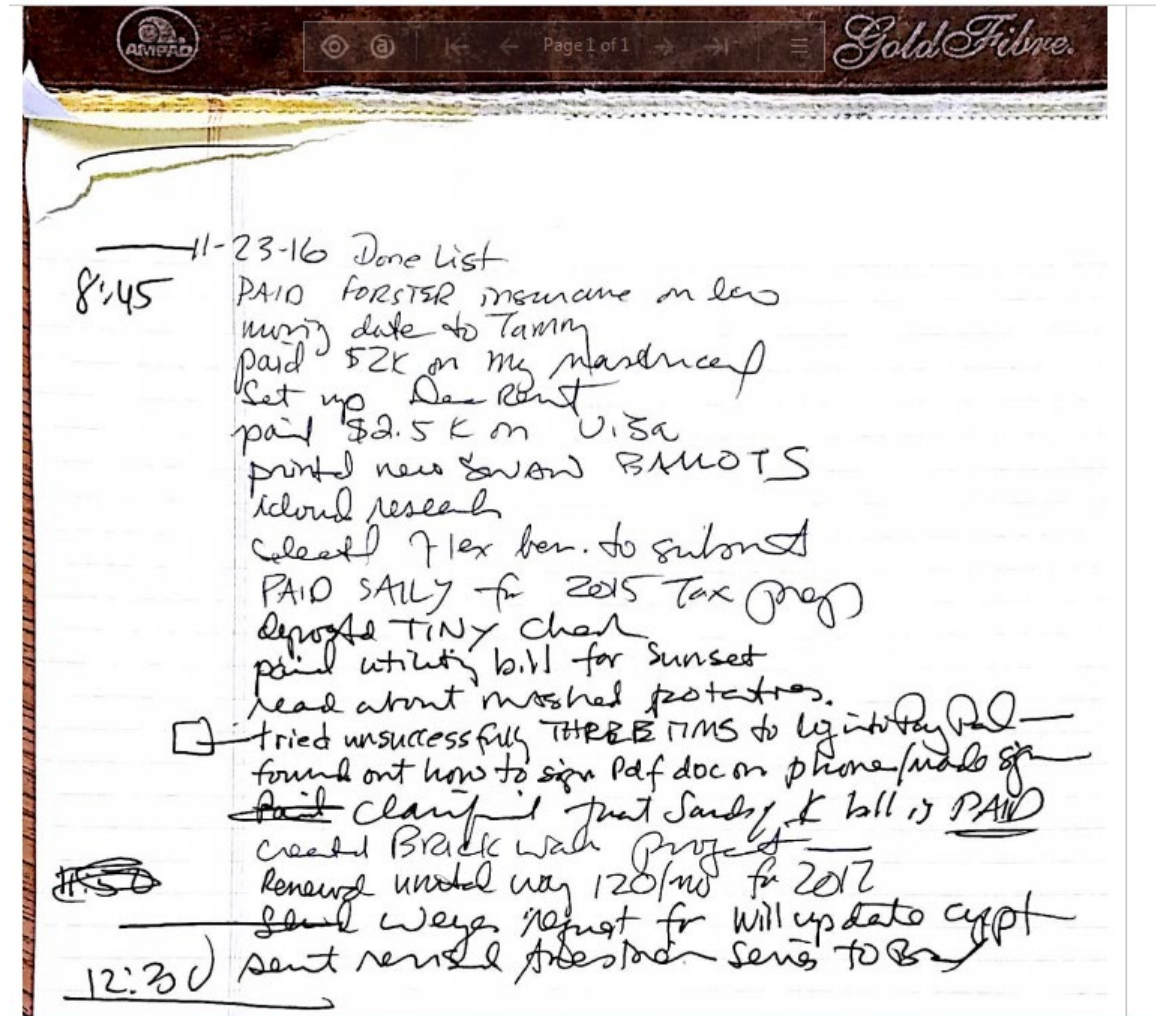 AMPAD
Page 1 of 1
Gold Fibre.
11-23-16 Done List
8:45 PAID FORSTER insurance on
moving date to Tammy
paid $2K on my mastercard
Set up Dec Rent
paid $2.5K on Visa
printed new BALLOTS
icloud research
flex ben. to submit
PAID SALLY for 2015 Tax prep
deposited TINY check
paid utility bill for Sunset
read about mashed potatoes.
tried unsuccessfully THREE TIMS to log into PayPal
found out how to sign Pdf doc on phone/made sign
Paid Clarified that Sandy K bill is PAID
created BRICK project
11:50 Renewed united way 120/mo for 2017
Send request for will update appt
12:30 sent revised series to